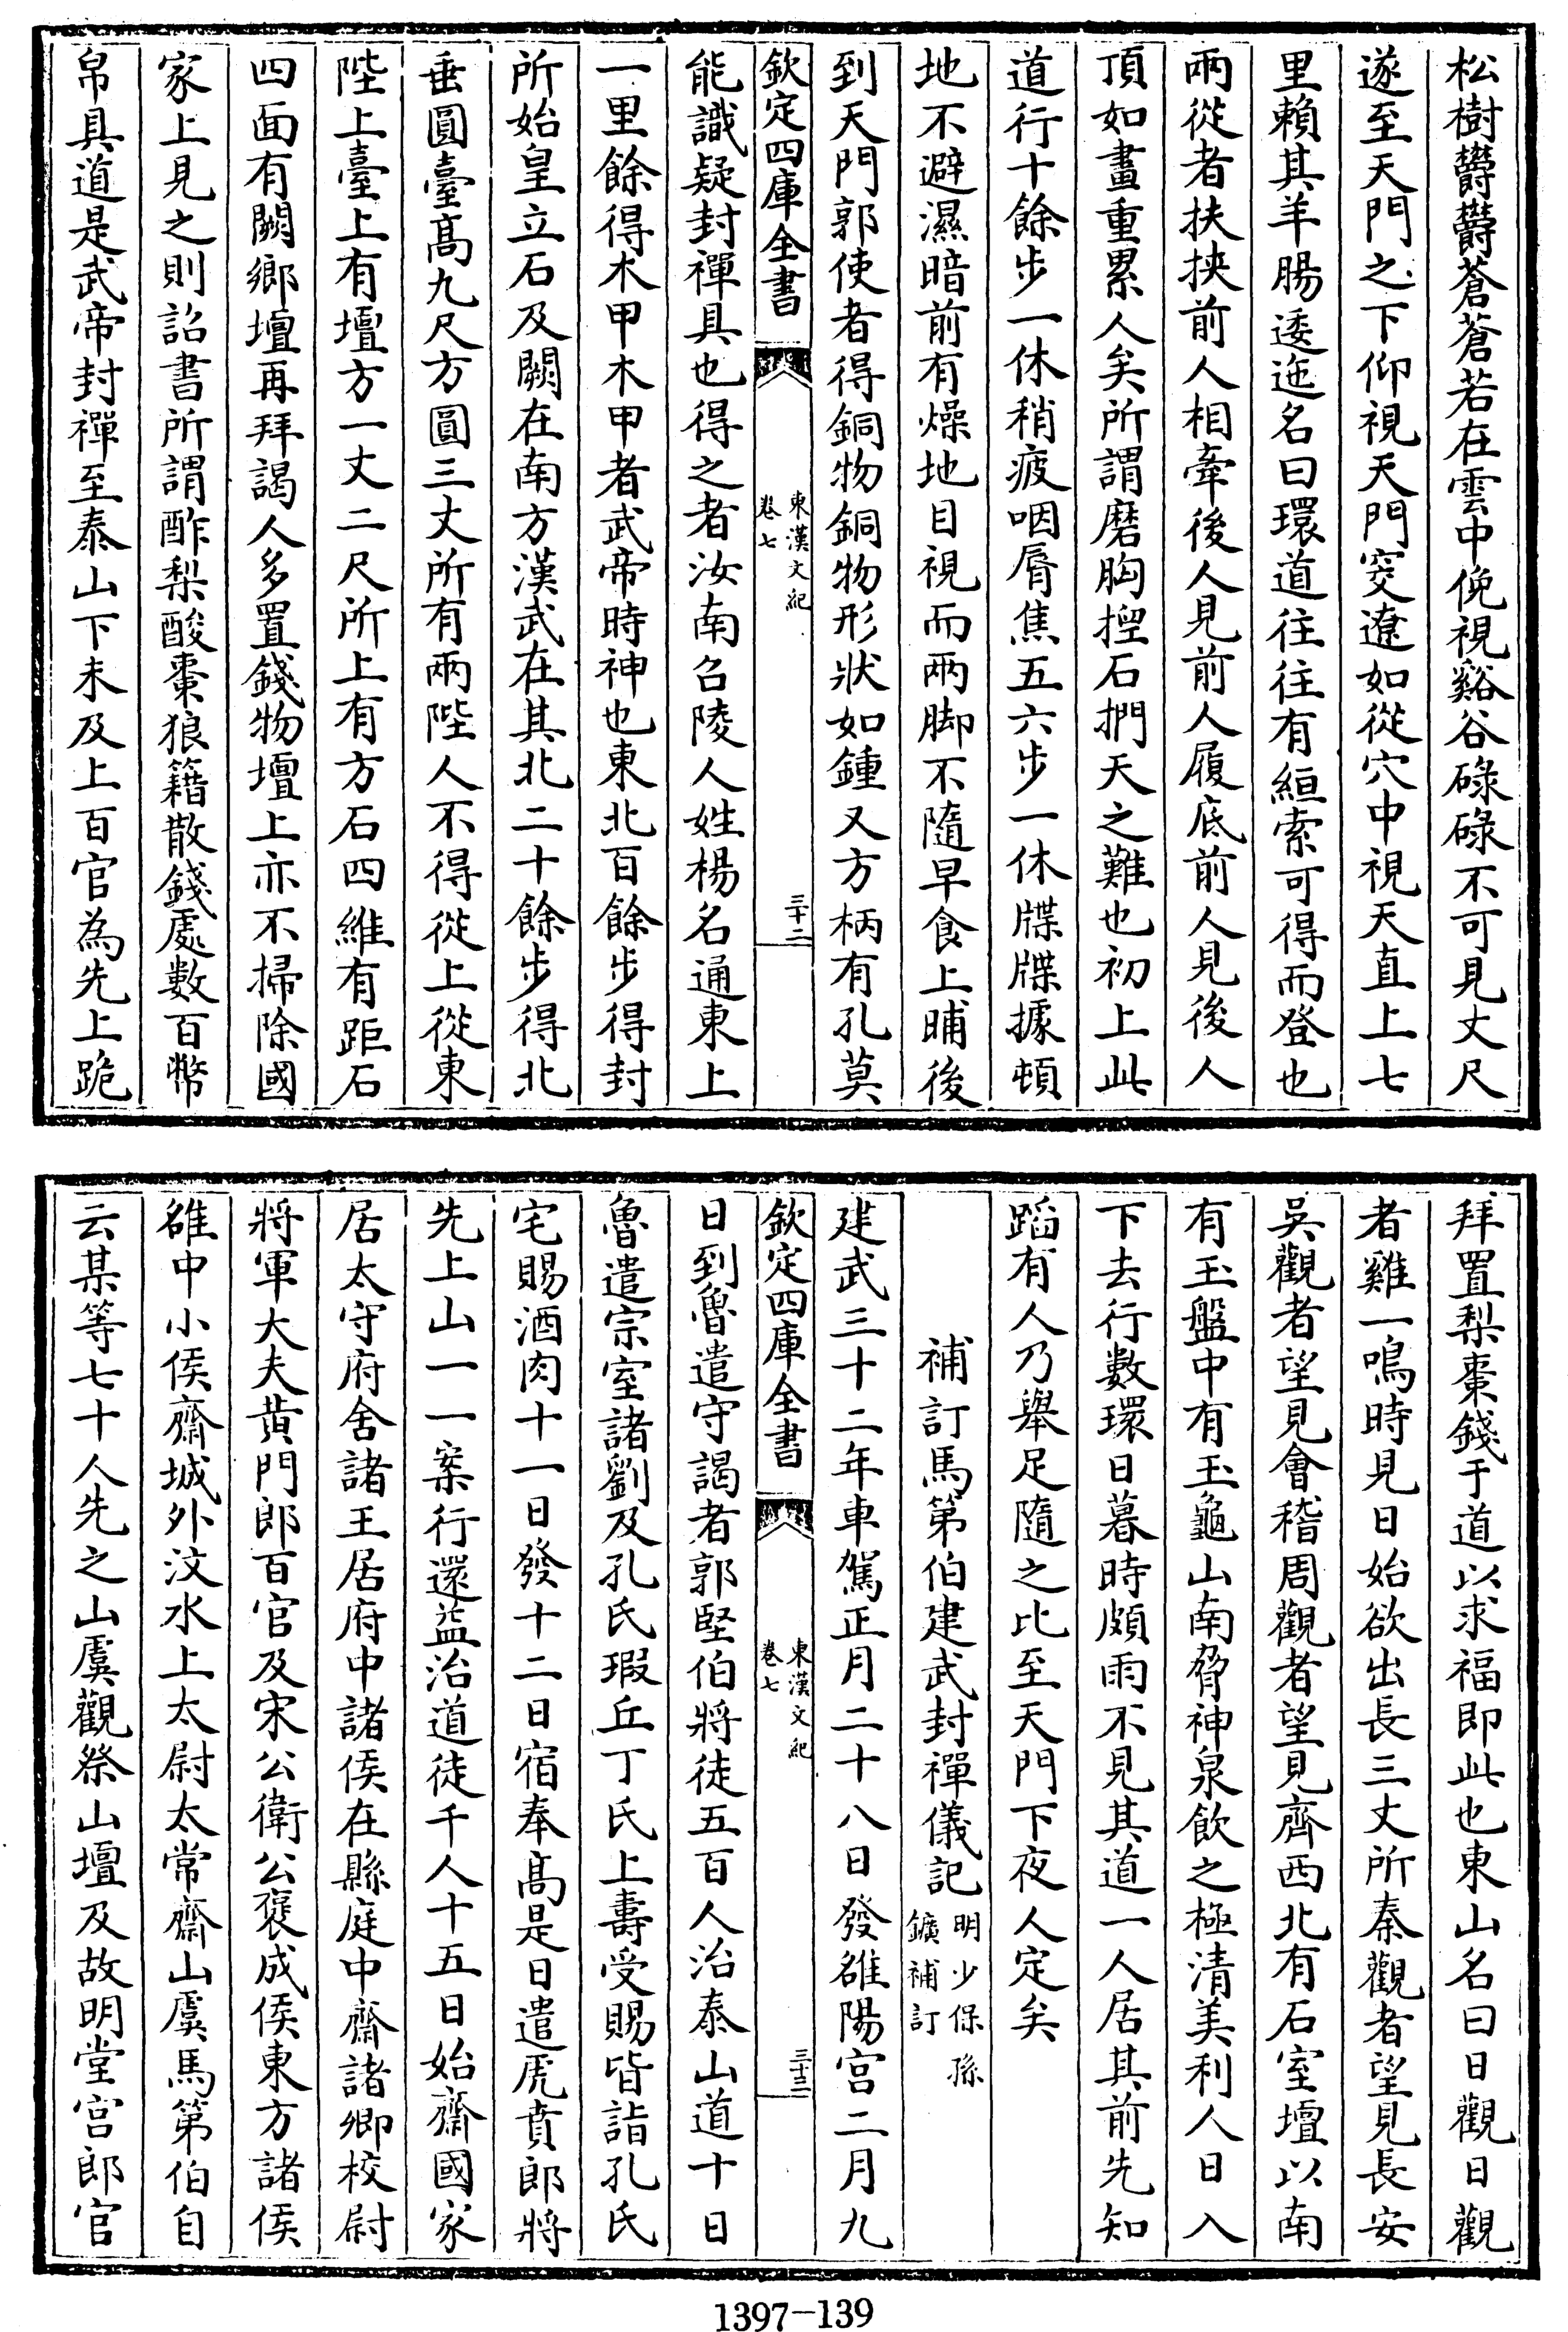 松樹鬱鬱蒼蒼若在雲中俛視谿谷碌碌不可見丈尺
遂至天門之下仰視天門窔遼如從穴中視天直上七
里賴其羊腸逶迤名曰環道往往有絙索可得而登也
兩從者扶挾前人相牽後人見前人履底前人見後人
頂如畫重累人矣所謂磨胸揑石捫天之難也初上此
道行十餘步一休稍疲咽脣焦五六步一休牒牒據頓
地不避濕暗前有燥地目視而兩脚不隨早食上晡後
到天門郭使者得銅物銅物形狀如鍾又方柄有孔莫
欽定四庫全書
東漢文紀
卷七
三十二
能識疑封禪具也得之者汝南召陵人姓楊名通東上
一里餘得木甲木甲者武帝時神也東北百餘步得封
所始皇立石及闕在南方漢武在其北二十餘步得北
垂圓臺髙九尺方圓三丈所有兩陛人不得從上從東
陛上臺上有壇方一丈二尺所上有方石四維有距石
四面有闕鄉壇再拜謁人多置錢物壇上亦不掃除國
家上見之則詔書所謂酢梨酸棗狼籍散錢處數百幣
帛具道是武帝封禪至泰山下未及上百官為先上跪
拜置梨棗錢于道以求福即此也東山名曰日觀日觀
者雞一鳴時見日始欲出長三丈所秦觀者望見長安
吳觀者望見會稽周觀者望見齊西北有石室壇以南
有玉盤中有玉龜山南脅神泉飲之極清美利人日入
下去行數環日暮時頗雨不見其道一人居其前先知
蹈有人乃舉足隨之比至天門下夜人定矣
補訂馬第伯建武封禪儀記
明少保孫
鑛補訂
建武三十二年車駕正月二十八日發雒陽宫二月九
欽定四庫全書
東漢文紀
卷七
三十三
日到魯遣守謁者郭堅伯將徒五百人治泰山道十日
魯遣宗室諸劉及孔氏瑕丘丁氏上壽受賜皆詣孔氏
宅賜酒肉十一日發十二日宿奉髙是日遣虎賁郎將
先上山一一案行還益治道徒千人十五日始齋國家
居太守府舍諸王居府中諸侯在縣庭中齋諸卿校尉
將軍大夫黄門郎百官及宋公衛公褒成侯東方諸侯
雒中小侯齋城外汶水上太尉太常齋山虞馬第伯自
云某等七十人先之山虞觀祭山壇及故明堂宫郎官
1397-139